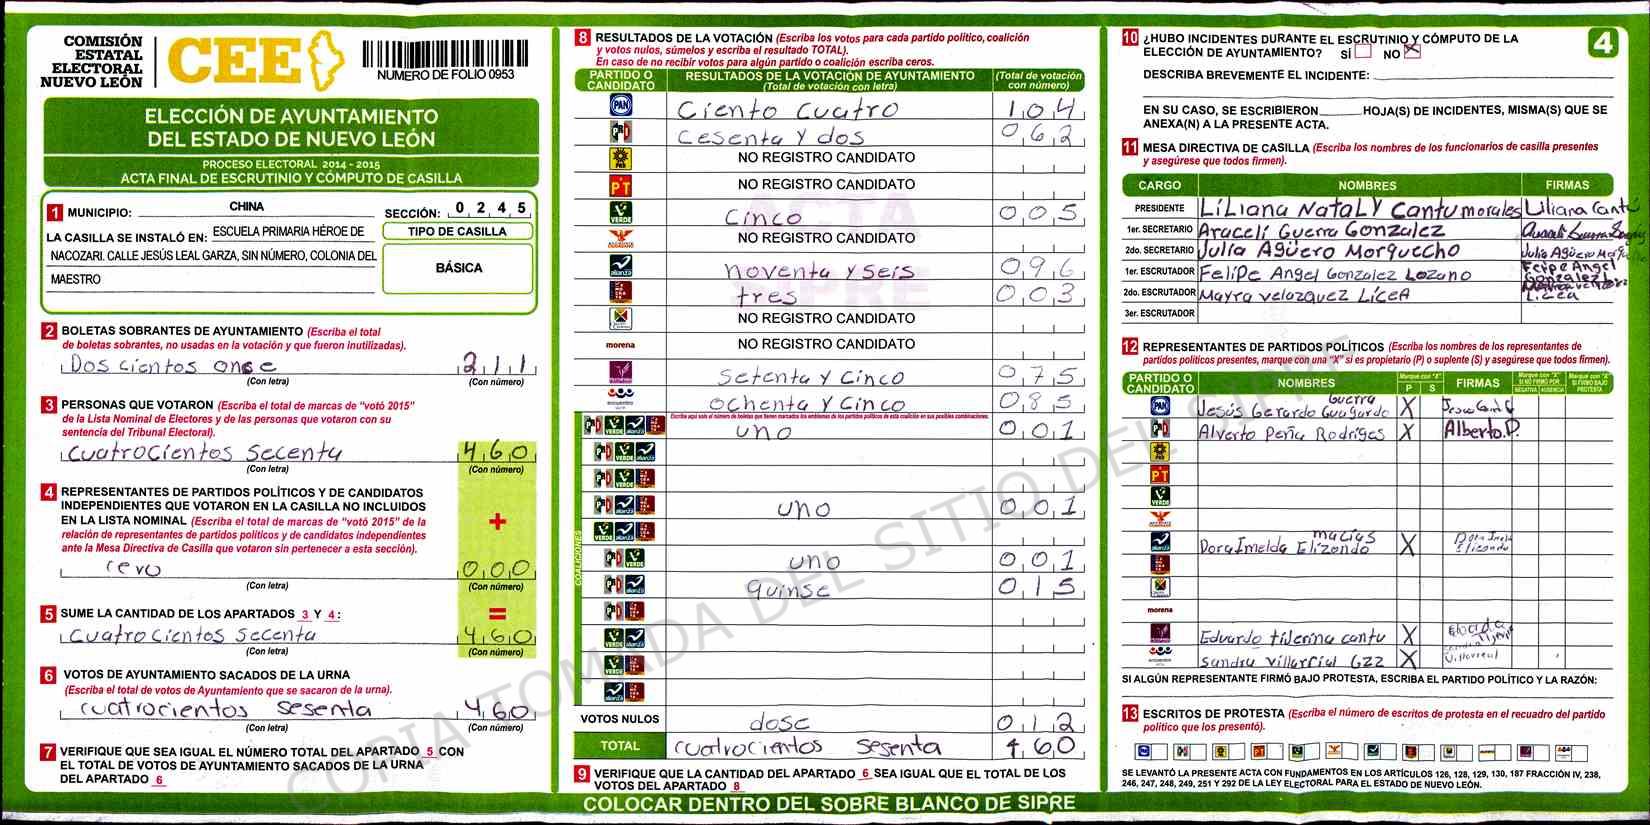 COMISIÓN
ESTATAL
ELECTORAL
NUEVO LEÓN
CEE
NUMERO DE FOLIO 0953
ELECCIÓN DE AYUNTAMIENTO
DEL ESTADO DE NUEVO LEÓN
PROCESO ELECTORAL 2014 - 2015
ACTA FINAL DE ESCRUTINIO Y CÓMPUTO DE CASILLA
1 MUNICIPIO: CHINA SECCIÓN: 0 2 4 5
LA CASILLA SE INSTALÓ EN: ESCUELA PRIMARIA HÉROE DE
NACOZARI. CALLE JESÚS LEAL GARZA, SIN NÚMERO, COLONIA DEL
MAESTRO
TIPO DE CASILLA
BÁSICA
2 BOLETAS SOBRANTES DE AYUNTAMIENTO (Escriba el total
de boletas sobrantes, no usadas en la votación y que fueron inutilizadas).
Dos cientos onse 2 1 1
(Con letra) (Con número)
3 PERSONAS QUE VOTARON (Escriba el total de marcas de "votó 2015"
de la Lista Nominal de Electores y de las personas que votaron con su
sentencia del Tribunal Electoral).
cuatrocientos secenta 4 6 0
(Con letra) (Con número)
4 REPRESENTANTES DE PARTIDOS POLÍTICOS Y DE CANDIDATOS
INDEPENDIENTES QUE VOTARON EN LA CASILLA NO INCLUIDOS
EN LA LISTA NOMINAL (Escriba el total de marcas de "votó 2015" de la
relación de representantes de partidos políticos y de candidatos independientes
ante la Mesa Directiva de Casilla que votaron sin pertenecer a esta sección).
+
cero 0 0 0
(Con letra) (Con número)
5 SUME LA CANTIDAD DE LOS APARTADOS 3 Y 4: =
cuatrocientos secenta 4 6 0
(Con letra) (Con número)
6 VOTOS DE AYUNTAMIENTO SACADOS DE LA URNA
(Escriba el total de votos de Ayuntamiento que se sacaron de la urna).
cuatrocientos sesenta 4 6 0
(Con letra) (Con número)
7 VERIFIQUE QUE SEA IGUAL EL NÚMERO TOTAL DEL APARTADO 5 CON
EL TOTAL DE VOTOS DE AYUNTAMIENTO SACADOS DE LA URNA
DEL APARTADO 6
8 RESULTADOS DE LA VOTACIÓN (Escriba los votos para cada partido político, coalición
y votos nulos, súmelos y escriba el resultado TOTAL).
En caso de no recibir votos para algún partido o coalición escriba ceros.
PARTIDO O CANDIDATO
RESULTADOS DE LA VOTACIÓN DE AYUNTAMIENTO
(Total de votación con letra)
(Total de votación con número)
PAN Ciento cuatro 1 0 4
PRD Cesenta y dos 0 6 2
PRD NO REGISTRO CANDIDATO
PT NO REGISTRO CANDIDATO
VERDE cinco 0 0 5
NO REGISTRO CANDIDATO
alianza noventa y seis 0 9 6
tres 0 0 3
NO REGISTRO CANDIDATO
morena NO REGISTRO CANDIDATO
setenta y cinco 0 7 5
ochenta y cinco 0 8 5
COALICIONES
Escriba aquí solo el número de boletas que tienen marcados los emblemas de los partidos políticos de esta coalición en sus posibles combinaciones.
uno 0 0 1
uno 0 0 1
uno 0 0 1
quinse 0 1 5
VOTOS NULOS dose 0 1 2
TOTAL cuatrocientos sesenta 4 6 0
9 VERIFIQUE QUE LA CANTIDAD DEL APARTADO 6 SEA IGUAL QUE EL TOTAL DE LOS
VOTOS DEL APARTADO 8
COLOCAR DENTRO DEL SOBRE BLANCO DE SIPRE
ACTA
SIPRE
COPIA TOMADA DEL SITIO DEL SIPRE
10 ¿HUBO INCIDENTES DURANTE EL ESCRUTINIO Y CÓMPUTO DE LA
ELECCIÓN DE AYUNTAMIENTO? SÍ NO X
4
DESCRIBA BREVEMENTE EL INCIDENTE:
EN SU CASO, SE ESCRIBIERON HOJA(S) DE INCIDENTES, MISMA(S) QUE SE
ANEXA(N) A LA PRESENTE ACTA.
11 MESA DIRECTIVA DE CASILLA (Escriba los nombres de los funcionarios de casilla presentes
y asegúrese que todos firmen).
CARGO NOMBRES FIRMAS
PRESIDENTE Liliana Nataly Cantu morales Liliana Cantú
1er. SECRETARIO Araceli Guerra Gonzalez
2do. SECRETARIO Julia Agüero Morquecho Julia Agüero
1er. ESCRUTADOR Felipe Angel Gonzalez Lozano Felipe Angel Gonzalez L.
2do. ESCRUTADOR Mayra velazquez Licea Licea
3er. ESCRUTADOR
12 REPRESENTANTES DE PARTIDOS POLÍTICOS (Escriba los nombres de los representantes de
partidos políticos presentes, marque con una "X" si es propietario (P) o suplente (S) y asegúrese que todos firmen).
PARTIDO O CANDIDATO NOMBRES Marque con "X" P S FIRMAS Marque con "X" SI NO FIRMÓ POR NEGATIVA AUSENCIA Marque con "X" SI FIRMÓ BAJO PROTESTA
PAN Jesús Gerardo Guajardo Guerra X
Alverto Peña Rodriges X Alberto.P.
PT
VERDE
alianza Dora Imelda Elizondo macias X Dora Imelda Elizondo
morena
Eduardo tijerina cantu X
Sandra villarrial Gzz X Villarreal
SI ALGÚN REPRESENTANTE FIRMÓ BAJO PROTESTA, ESCRIBA EL PARTIDO POLÍTICO Y LA RAZÓN:
13 ESCRITOS DE PROTESTA (Escriba el número de escritos de protesta en el recuadro del partido
político que los presentó).
SE LEVANTÓ LA PRESENTE ACTA CON FUNDAMENTOS EN LOS ARTÍCULOS 126, 128, 129, 130, 187 FRACCIÓN IV, 238,
246, 247, 248, 249, 251 Y 292 DE LA LEY ELECTORAL PARA EL ESTADO DE NUEVO LEÓN.